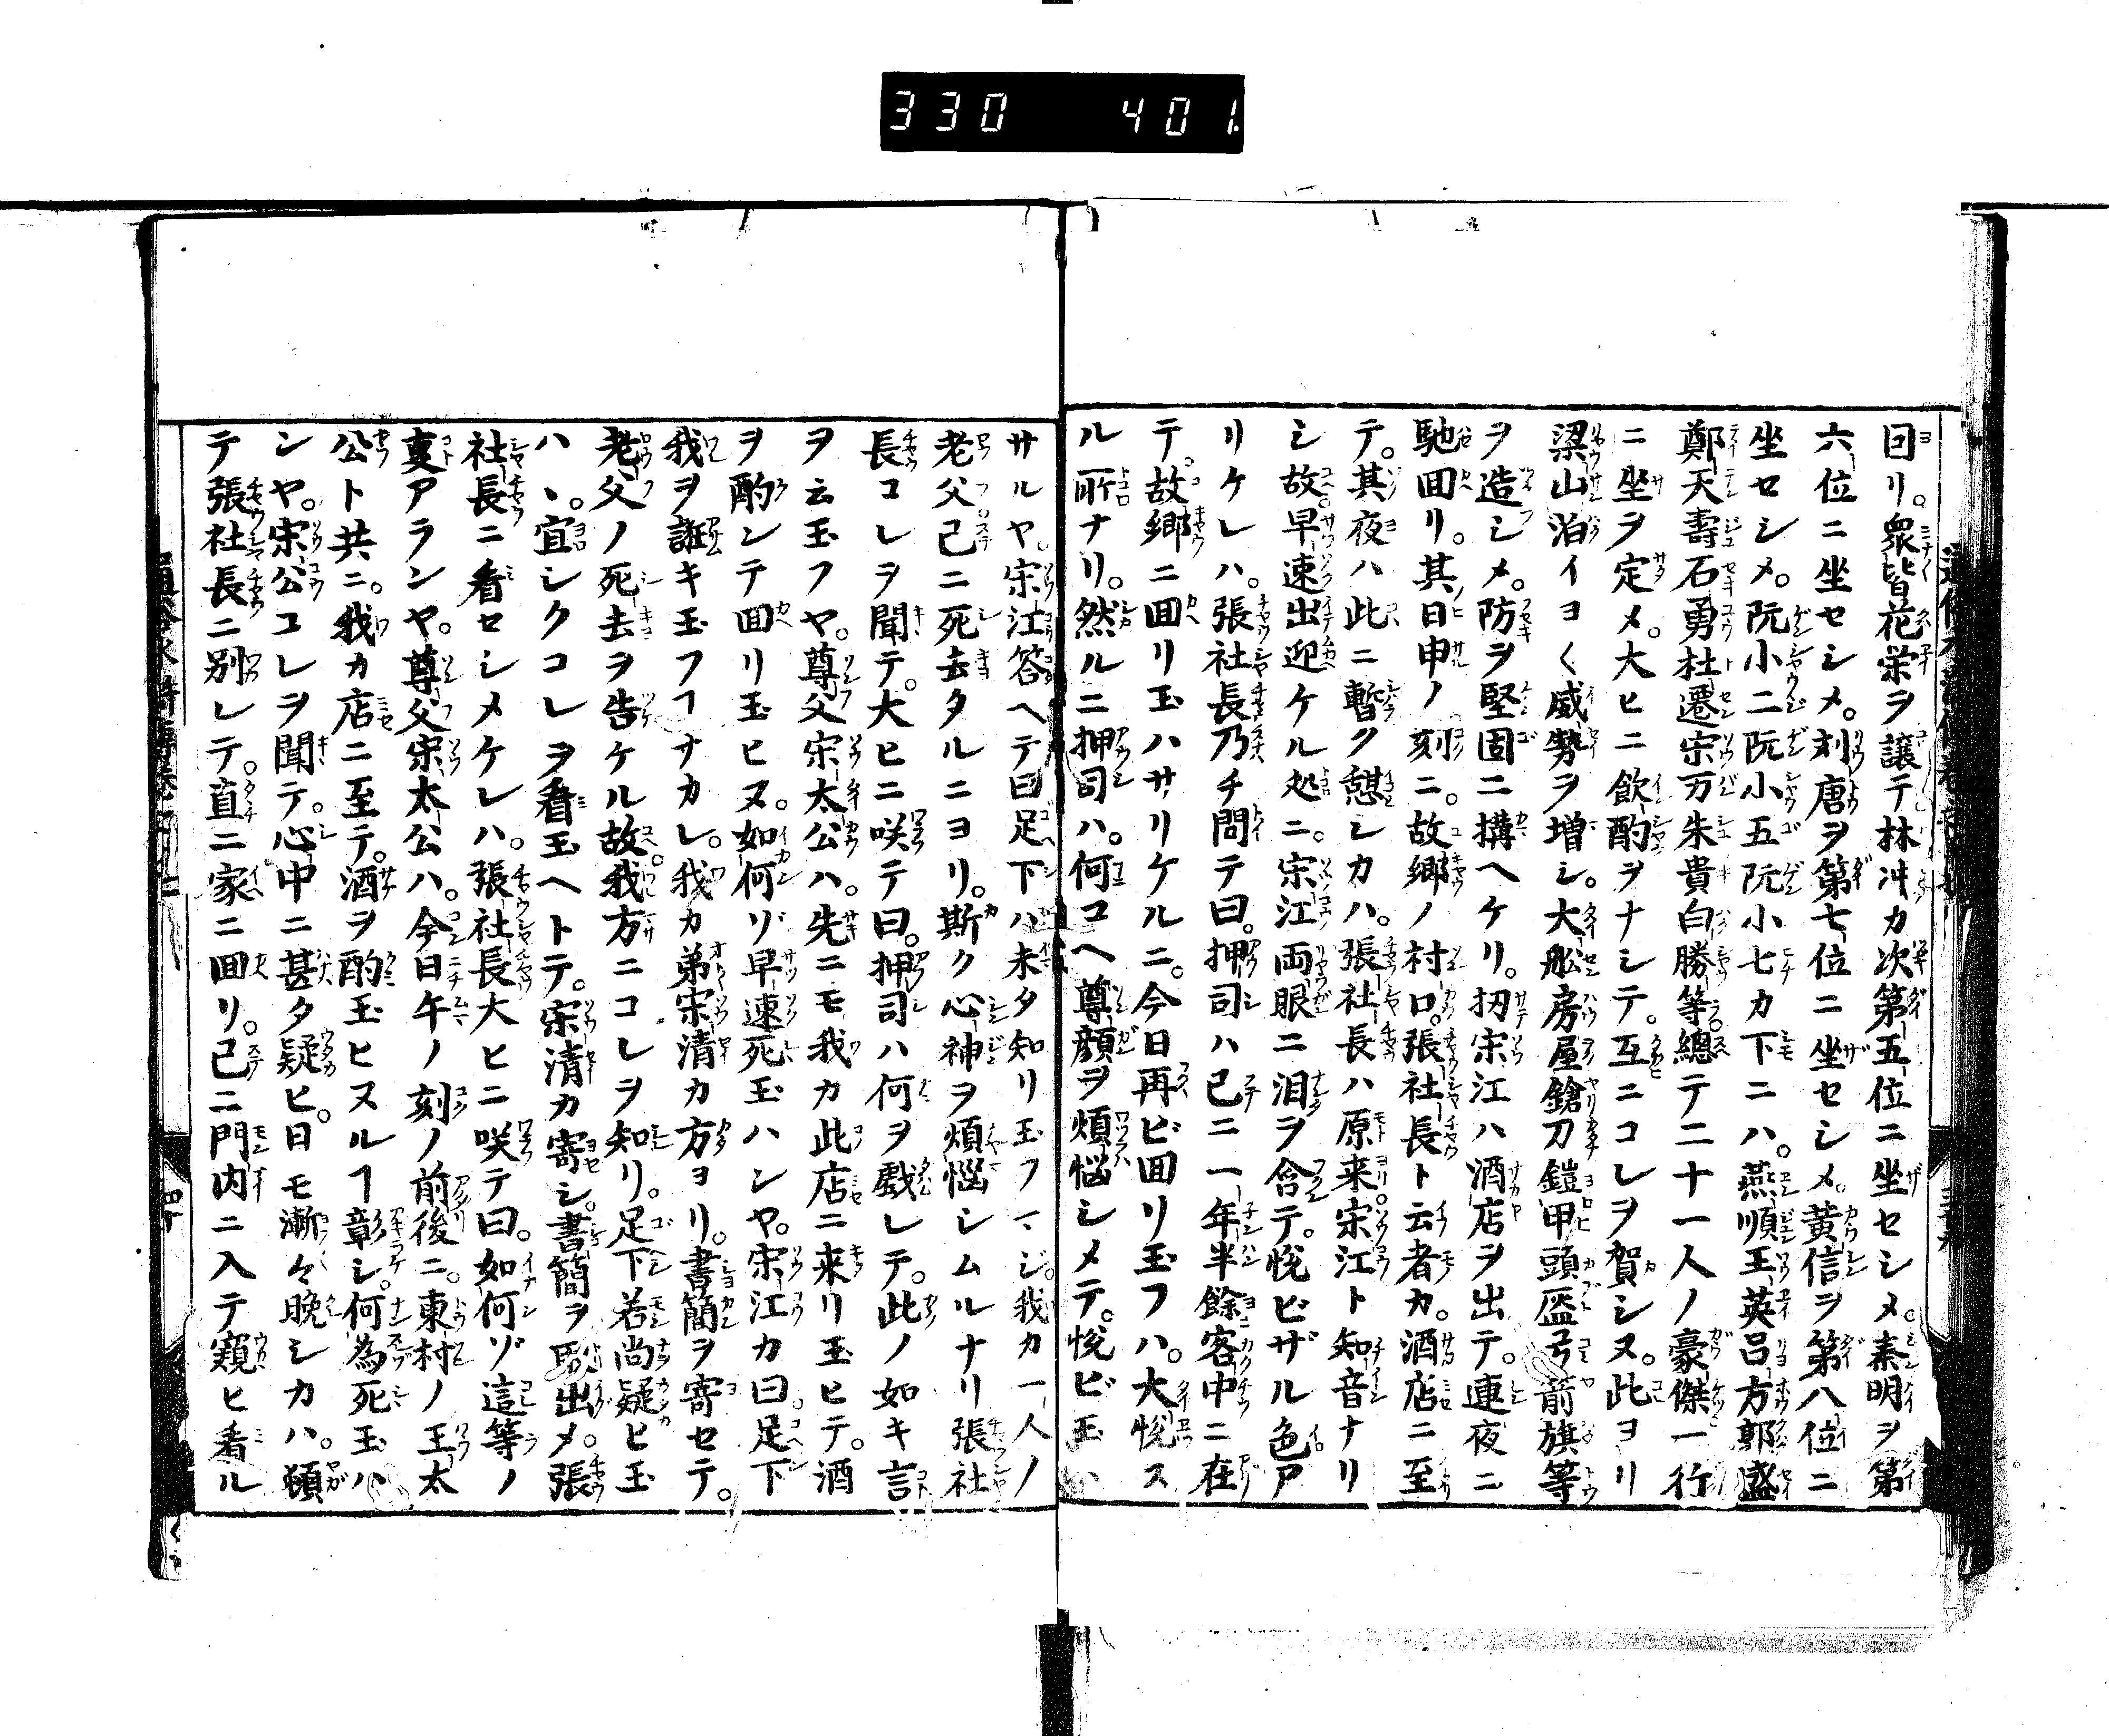 330 401
回リ。衆皆花栄ヲ譲テ林冲カ次第五位ニ坐セシメ。秦明ヲ第
六位ニ坐セシメ。刘唐ヲ第七位ニ坐セシメ。黄信ヲ第八位ニ
坐セシメ。阮小二阮小五阮小七カ下ニハ。燕順王英呂方郭盛
鄭天壽石勇杜遷宋万朱貴白勝等總テ二十一人ノ豪傑一行
ニ坐ヲ定メ。大ヒニ飲酌ヲナシテ。互ニコレヲ賀シヌ。此ヨリ
梁山泊イヨ〱威勢ヲ増シ。大舩房屋鎗刀鎧甲頭盔弓箭旗等
ヲ造シメ。防ヲ堅固ニ搆ヘケリ。扨宋江ハ酒店ヲ出テ。連夜ニ
馳回リ。其日申ノ刻ニ。故郷ノ村口。張社長ト云者カ。酒店ニ至
テ。其夜ハ此ニ暫ク憩シカハ。張社長ハ原来宋江ト知音ナリ
シ故。早速出迎ケル処ニ。宋江両眼ニ泪ヲ含テ。悦ビザル色ア
リケレハ。張社長乃チ問テ曰。押司ハ已ニ一年半餘客中ニ在
テ。故郷ニ回リ玉ハサリケルニ。今日再ビ回リ玉フハ。大悦ス
ル所ナリ。然ルニ押司ハ。何コヘ尊顔ヲ煩悩シメテ。悦ビ玉ハ
サルヤ。宋江答ヘテ曰足下ハ未タ知リ玉フマジ。我カ一人ノ
老父已ニ死去タルニヨリ。斯ク心神ヲ煩悩シムルナリ張社
長コレヲ聞テ。大ヒニ咲テ曰。押司ハ何ヲ戯レテ。此ノ如キ言
ヲ云玉フヤ。尊父宋太公ハ。先ニモ我カ此店ニ来リ玉ヒテ。酒
ヲ酌ンテ回リ玉ヒヌ。如何ゾ早速死玉ハンヤ。宋江カ曰。足下
我ヲ誑キ玉フヿナカレ。我カ弟宋清カ方ヨリ。書簡ヲ寄セテ。
老父ノ死去ヲ告ケル故。我方ニコレヲ知リ。足下若尚疑ヒ玉
ハヽ。宜シクコレヲ看玉ヘトテ。宋清カ寄シ。書簡ヲ取出メ。張
社長ニ看セシメケレハ。張社長大ヒニ咲テ曰。如何ゾ這等ノ
叓アランヤ。尊父宋太公ハ。今日午ノ刻ノ前後ニ。東村ノ王太
公ト共ニ。我カ店ニ至テ。酒ヲ酌玉ヒヌルヿ彰シ。何為死玉ハ
ンヤ。宋公コレヲ聞テ。心中ニ甚タ疑ヒ。日モ漸々晩シカハ。頓
テ張社長ニ別レテ。直ニ家ニ回リ。已ニ門内ニ入テ窺ヒ看ル
四十